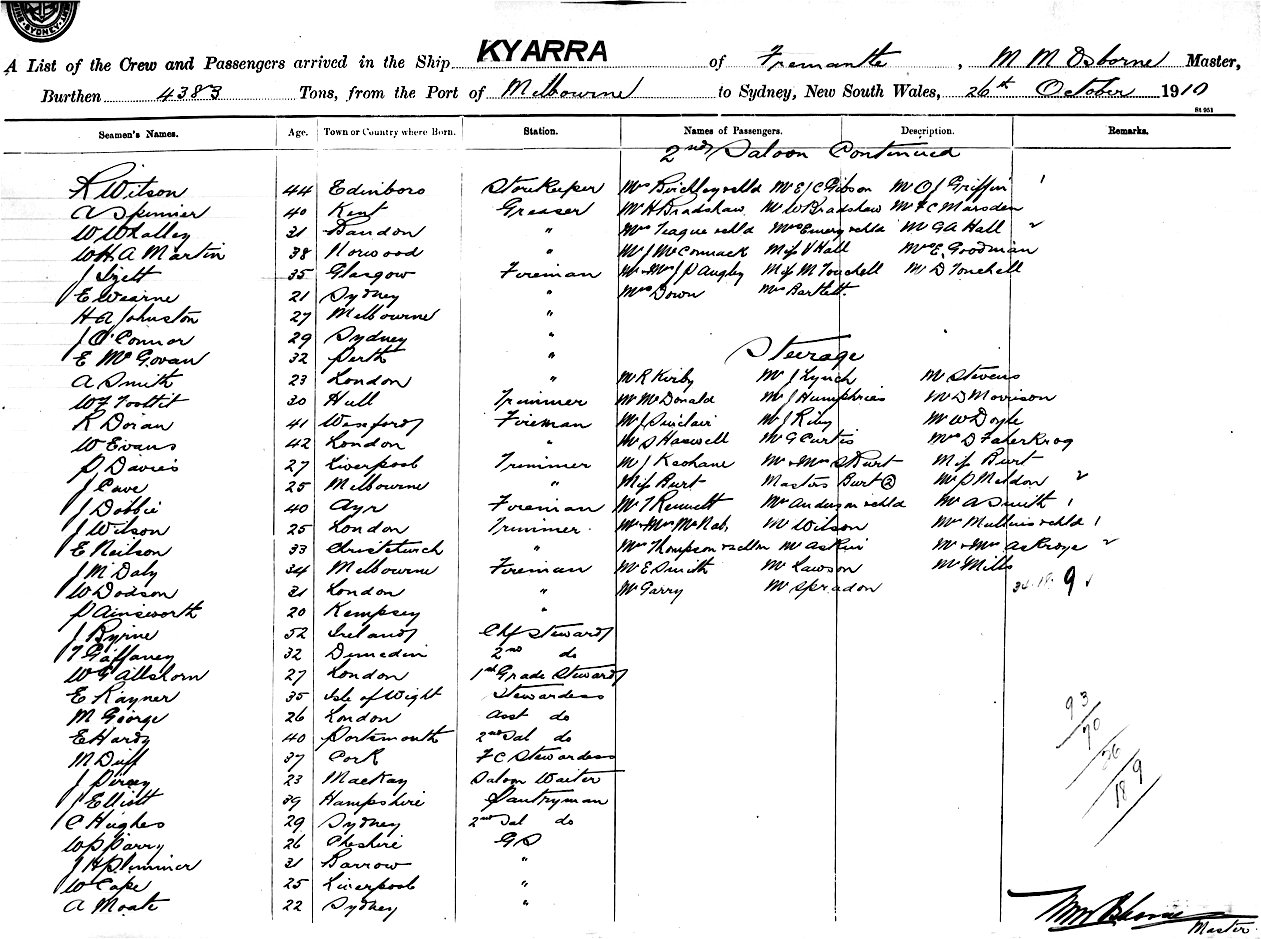 A List of the Crew and Passengers arrived in the Ship KYARRA of Fremantle, M M Osborne Master,
Burthen 4383 Tons, from the Port of Melbourne to Sydney, New South Wales, 26th October 1910
St 951
Seamen's Names. Age. Town or Country where Born. Station. Names of Passengers. Description. Remarks.
2nd Saloon Continued
R Wilson 44 Edinboro Storekeeper Mrs & chld Mr E J C Gibson Mr O J Griffin 1
A 40 Kent Greaser Mr H Bradshaw Mr W Bradshaw Mr F C Marsden
W Whalley 31 Bandon " Mrs Teague & chld Mrs Emery & chld Mr G A Hall 2
W H A Martin 38 Norwood " Mr J McCormack Miss V Hall Mrs E Goodman
J 35 Glasgow Foreman Mr & Mrs J P Angley Miss M Touchell Mr D Touchell
E Wearne 21 Sydney " Mrs Down Mrs Bartlett.
H A Johnston 27 Melbourne "
J O'Connor 29 Sydney "
Steerage
E McGovan 32 Perth "
A Smith 23 London " Mr R Kirby Mr J Lynch Mr Stevens
W J Toottit 30 Hull Trimmer Mr McDonald Mr J Humphries Mr D Morrison
R Doran 41 Fireman Mr J Sinclair Mr J Riley Mr W Doyle
W Evans 42 London " Mr S Haswell Mr G Curtis Mrs D Faherkrog
P Davies 27 Liverpool Trimmer Mr J Keohane Mr & Mrs S Burt Miss Burt
J Cave 25 Melbourne " Miss Burt Masters Burt (2) Mr P Meldon 2
J Dobbie 40 Ayr Fireman Mr T Rennett Mrs Anderson & chld Mr A Smith 1
J Wilson 25 London Trimmer. Mr & Mrs McNab. Mr Wilson Mrs & chld 1
E Neilson 33 Christchurch " Mrs Thompson Mr Askin Mr & Mrs 2
J McDaly 34 Melbourne Fireman Mr E Smith Mr Lawson Mr Mills
W Dodson 31 London " Mr Garry Mr Spradon 9
P Ainsworth 20 Kempsey "
J Byrne 52 Ireland Chf Steward
T Gaffaney 32 Dunedin 2nd do
W G Allshorn 27 London 1st Grade Steward
E Rayner 35 Isle of Wight Stewardess
M George 26 London Asst do
E Hardy 40 Portsmouth 2nd Sal do
M Duff 37 Cork F C Stewardess
J Percy 23 Mackay Saloon Waiter
J Elliott 39 Hampshire Pantryman
C Hughes 29 Sydney 2nd Sal do
W P Parry 26 Cheshire G S
J H Plummer 31 Barrow "
W Cape 25 Liverpool "
A Moate 22 Sydney "
93
70
26
189
Master